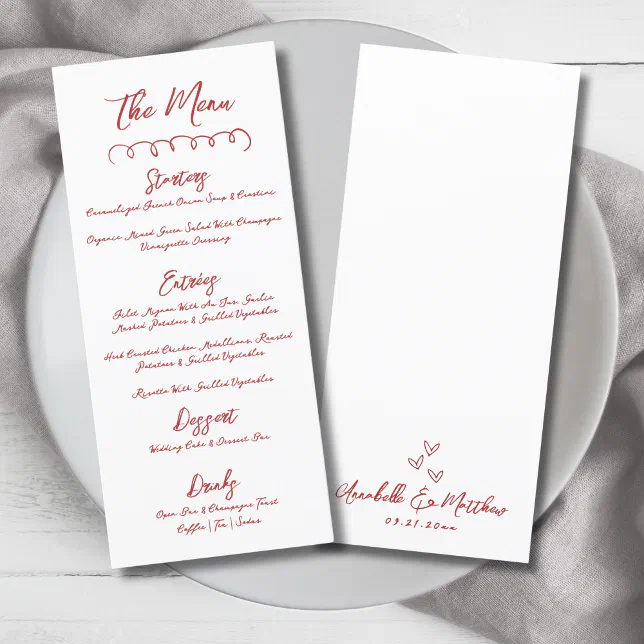 The Menu
Starters
Caramelized French Onion Soup & Crostini
Organic Mixed Green Salad With Champagne
Vinnigrette Dressing
Entrées
Filet Mignon With Au Jus, Garlic
Mashed Potatoes & Grilled Vegetables
Herb Crusted Chicken Medallions, Roasted
Potatoes & Grilled Vegetables
Risotto With Grilled Vegetables
Dessert
Wedding Cake & Dessert Bar
Drinks
Open Bar & Champagne Toast
Coffee | Tea | Sodas
Annabelle & Matthew
09.21.20xx